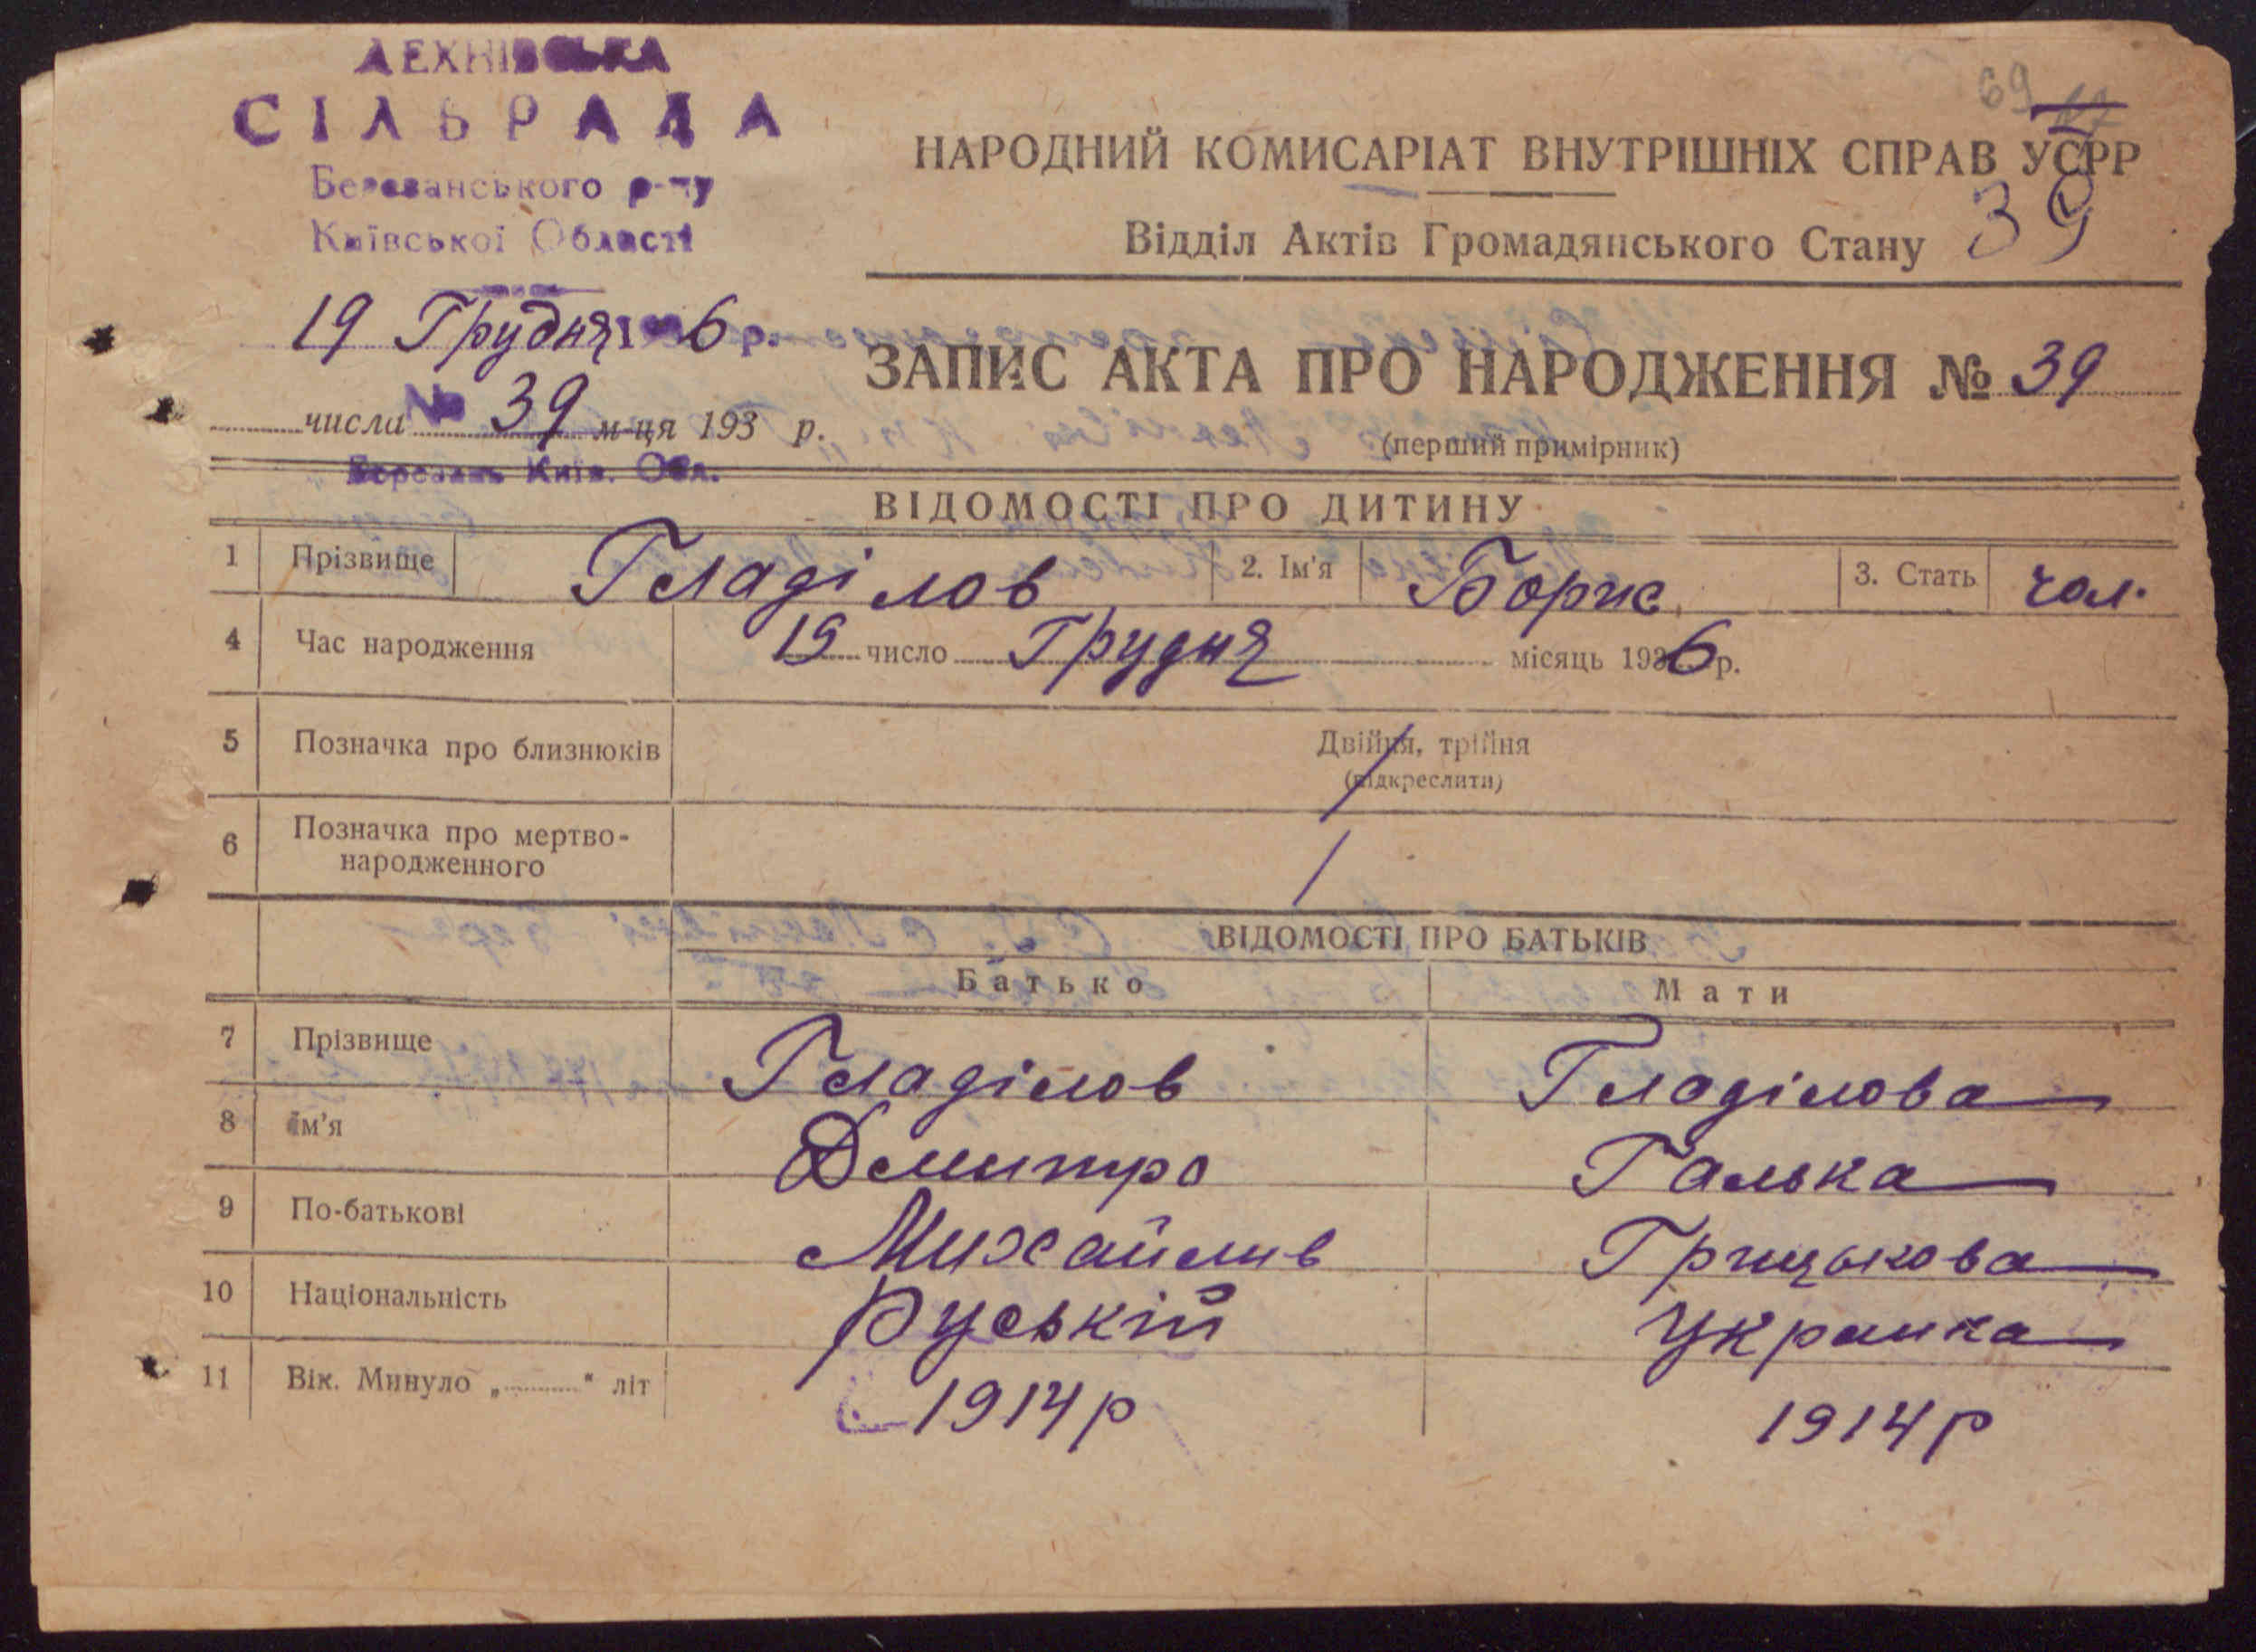 ЛЕХНІВСЬКА
СІЛЬРАДА
Березанського р-ну
Київської Області
19 Грудня 1936 р.
№ 39
числа м-ця 193 р.
Березань Київ. Обл.
69
39
НАРОДНИЙ КОМИСАРІАТ ВНУТРІШНІХ СПРАВ УСРР
Відділ Актів Громадянського Стану
ЗАПИС АКТА ПРО НАРОДЖЕННЯ № 39
(перший примірник)
ВІДОМОСТІ ПРО ДИТИНУ
1 Прізвище Гладілов 2. Ім'я Борис 3. Стать чол.
4 Час народження 19 число Грудня місяць 1936 р.
5 Позначка про близнюків Двійня, трійня
(підкреслити)
6 Позначка про мертво-
народженного
ВІДОМОСТІ ПРО БАТЬКІВ
Батько Мати
7 Прізвище Гладілов Гладілова
8 Ім'я Дмитро Галька
9 По-батькові Михайлив Грицькова
10 Національність Руській Украинка
11 Вік. Минуло „ “ літ 1914 р 1914 р